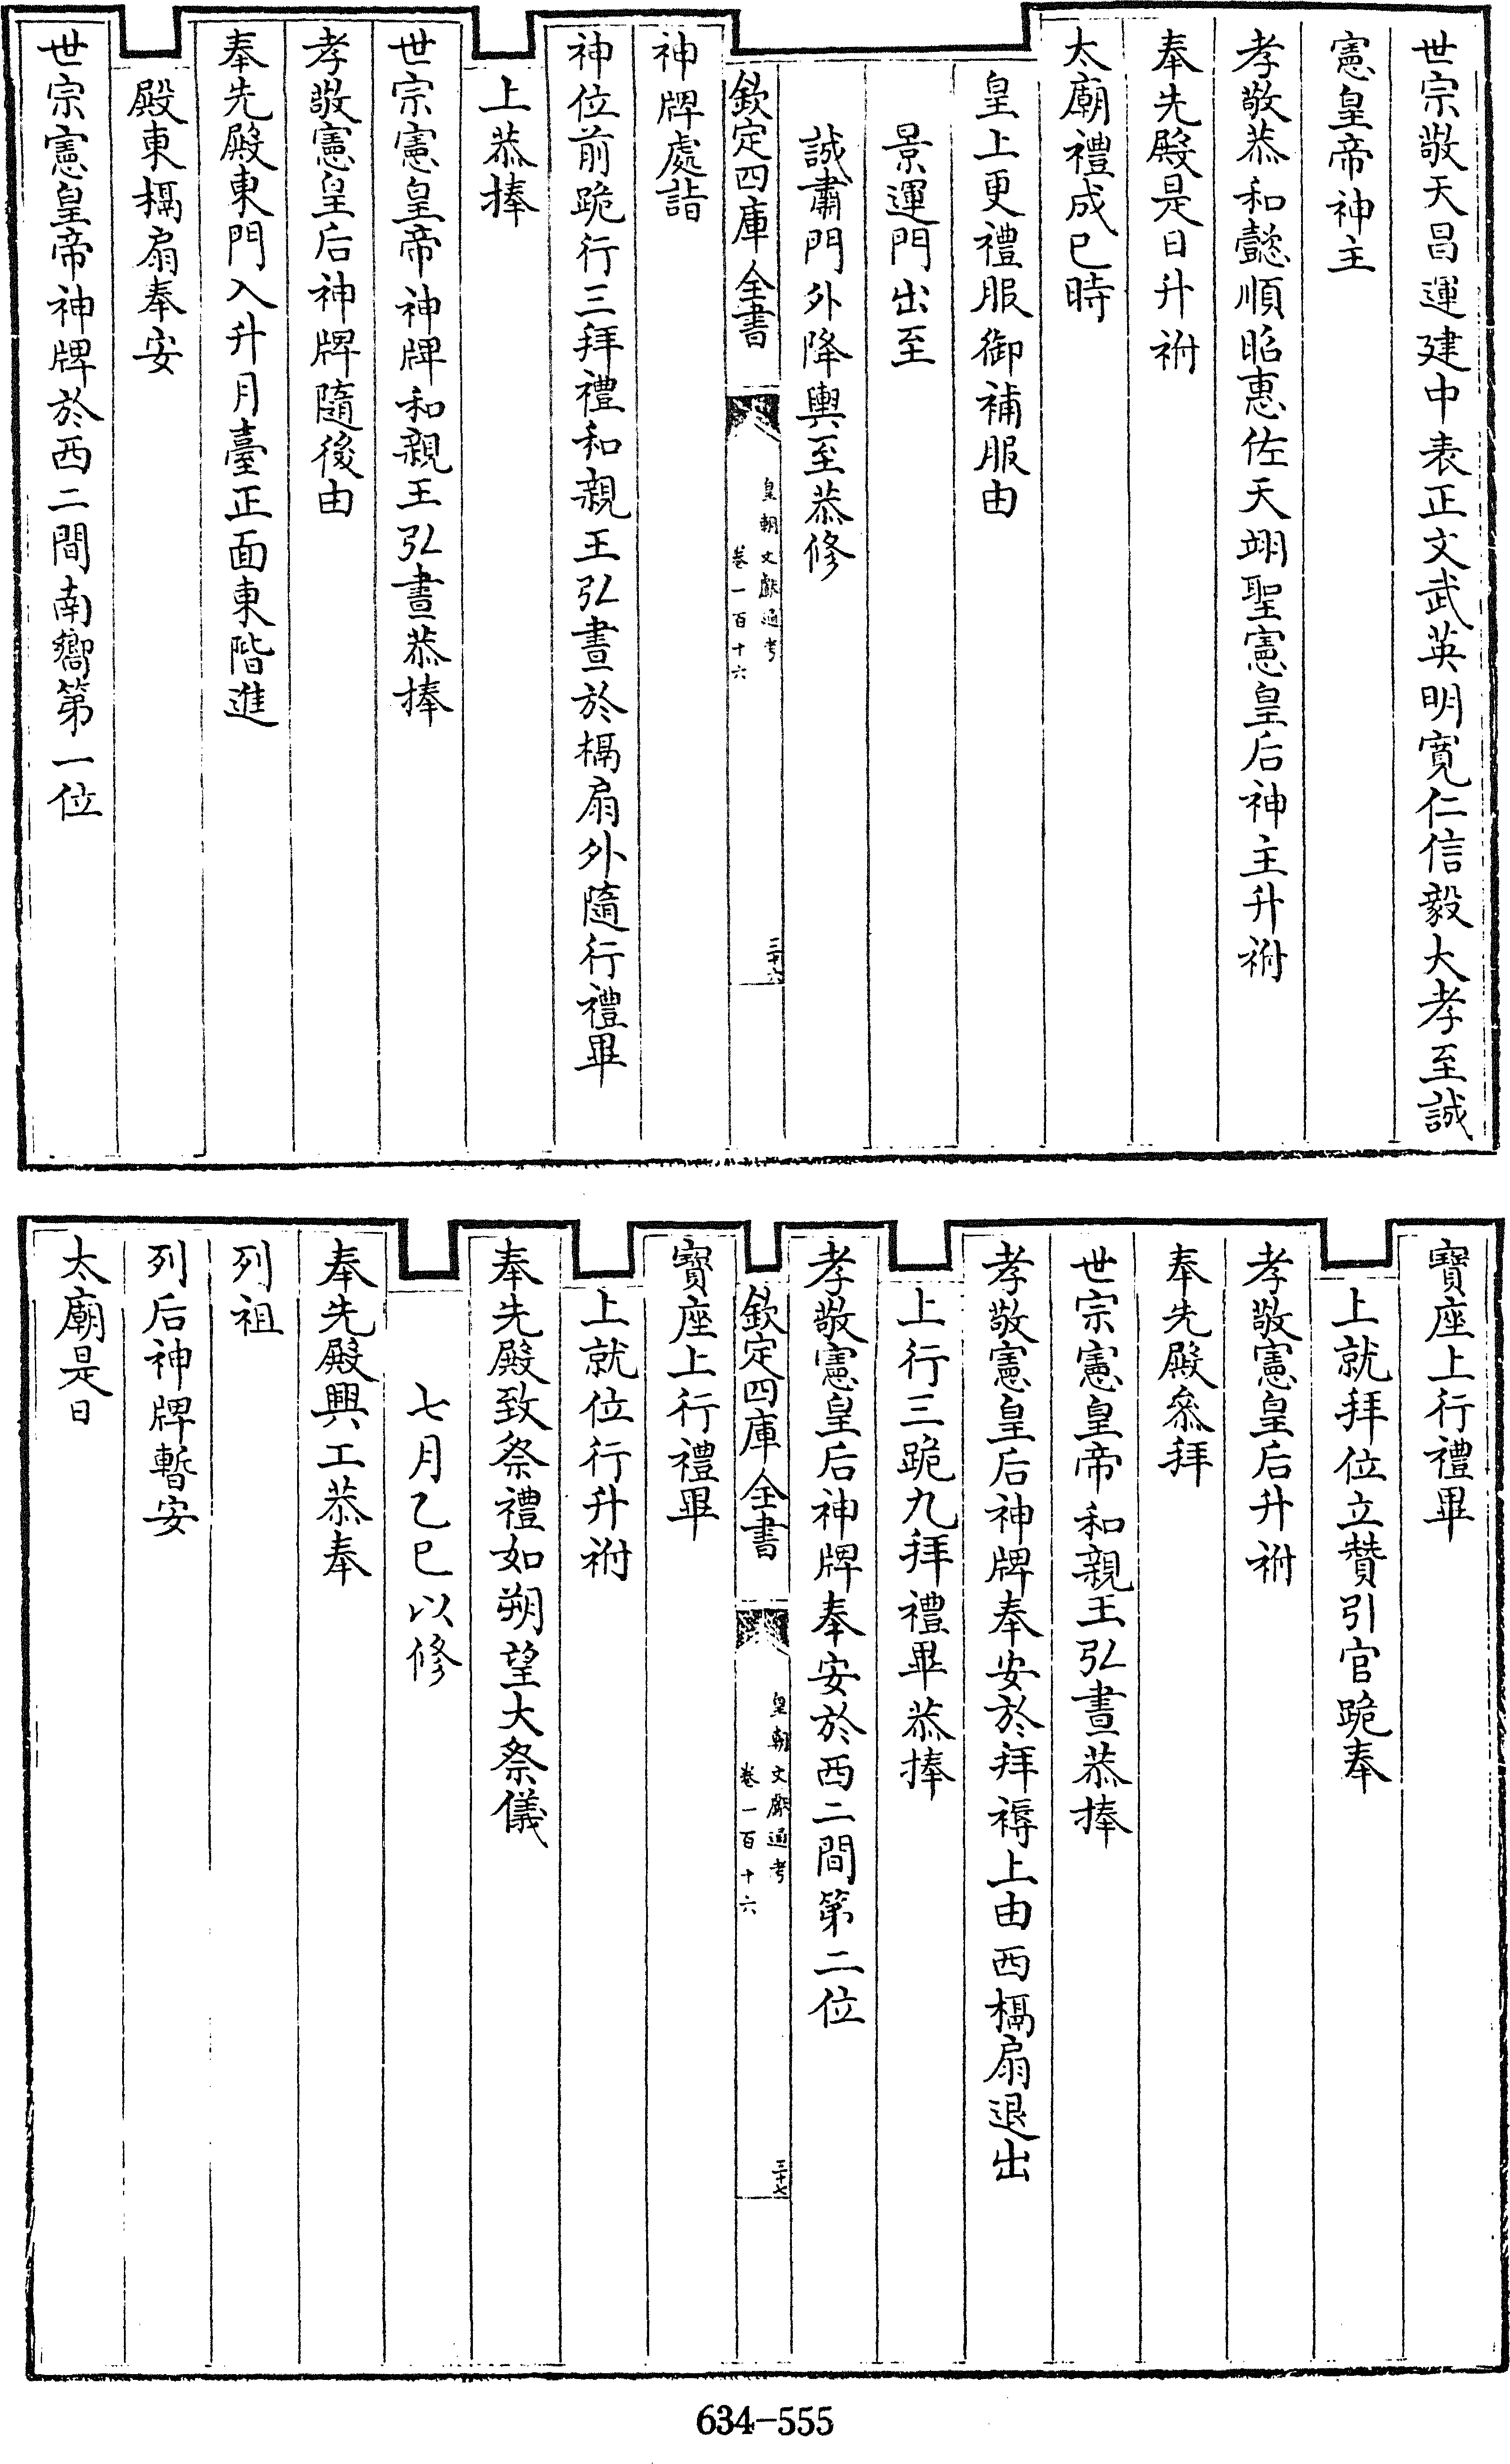 世宗敬天昌運建中表正文武英明寛仁信毅大孝至誠
憲皇帝神主
孝敬恭和懿順昭惠佐天翊聖憲皇后神主升祔
奉先殿是日升祔
太廟禮成巳時
皇上更禮服御補服由
景運門出至
誠肅門外降輿至恭修
欽定四庫全書
皇朝文獻通考
卷一百十六
三十六
神牌處詣
神位前跪行三拜禮和親王弘晝於槅扇外隨行禮畢
上恭捧
世宗憲皇帝神牌和親王弘晝恭捧
孝敬憲皇后神牌隨後由
奉先殿東門入升月臺正面東階進
殿東槅扇奉安
世宗憲皇帝神牌於西二間南嚮第一位
寳座上行禮畢
上就拜位立贊引官跪奉
孝敬憲皇后升祔
奉先殿叅拜
世宗憲皇帝和親王弘晝恭捧
孝敬憲皇后神牌奉安於拜褥上由西槅扇退出
上行三跪九拜禮畢恭捧
孝敬憲皇后神牌奉安於西二間第二位
欽定四庫全書
皇朝文獻通考
卷一百十六
三十七
寳座上行禮畢
上就位行升祔
奉先殿致祭禮如朔望大祭儀
七月乙巳以修
奉先殿興工恭奉
列祖
列后神牌暫安
太廟是日
634-555